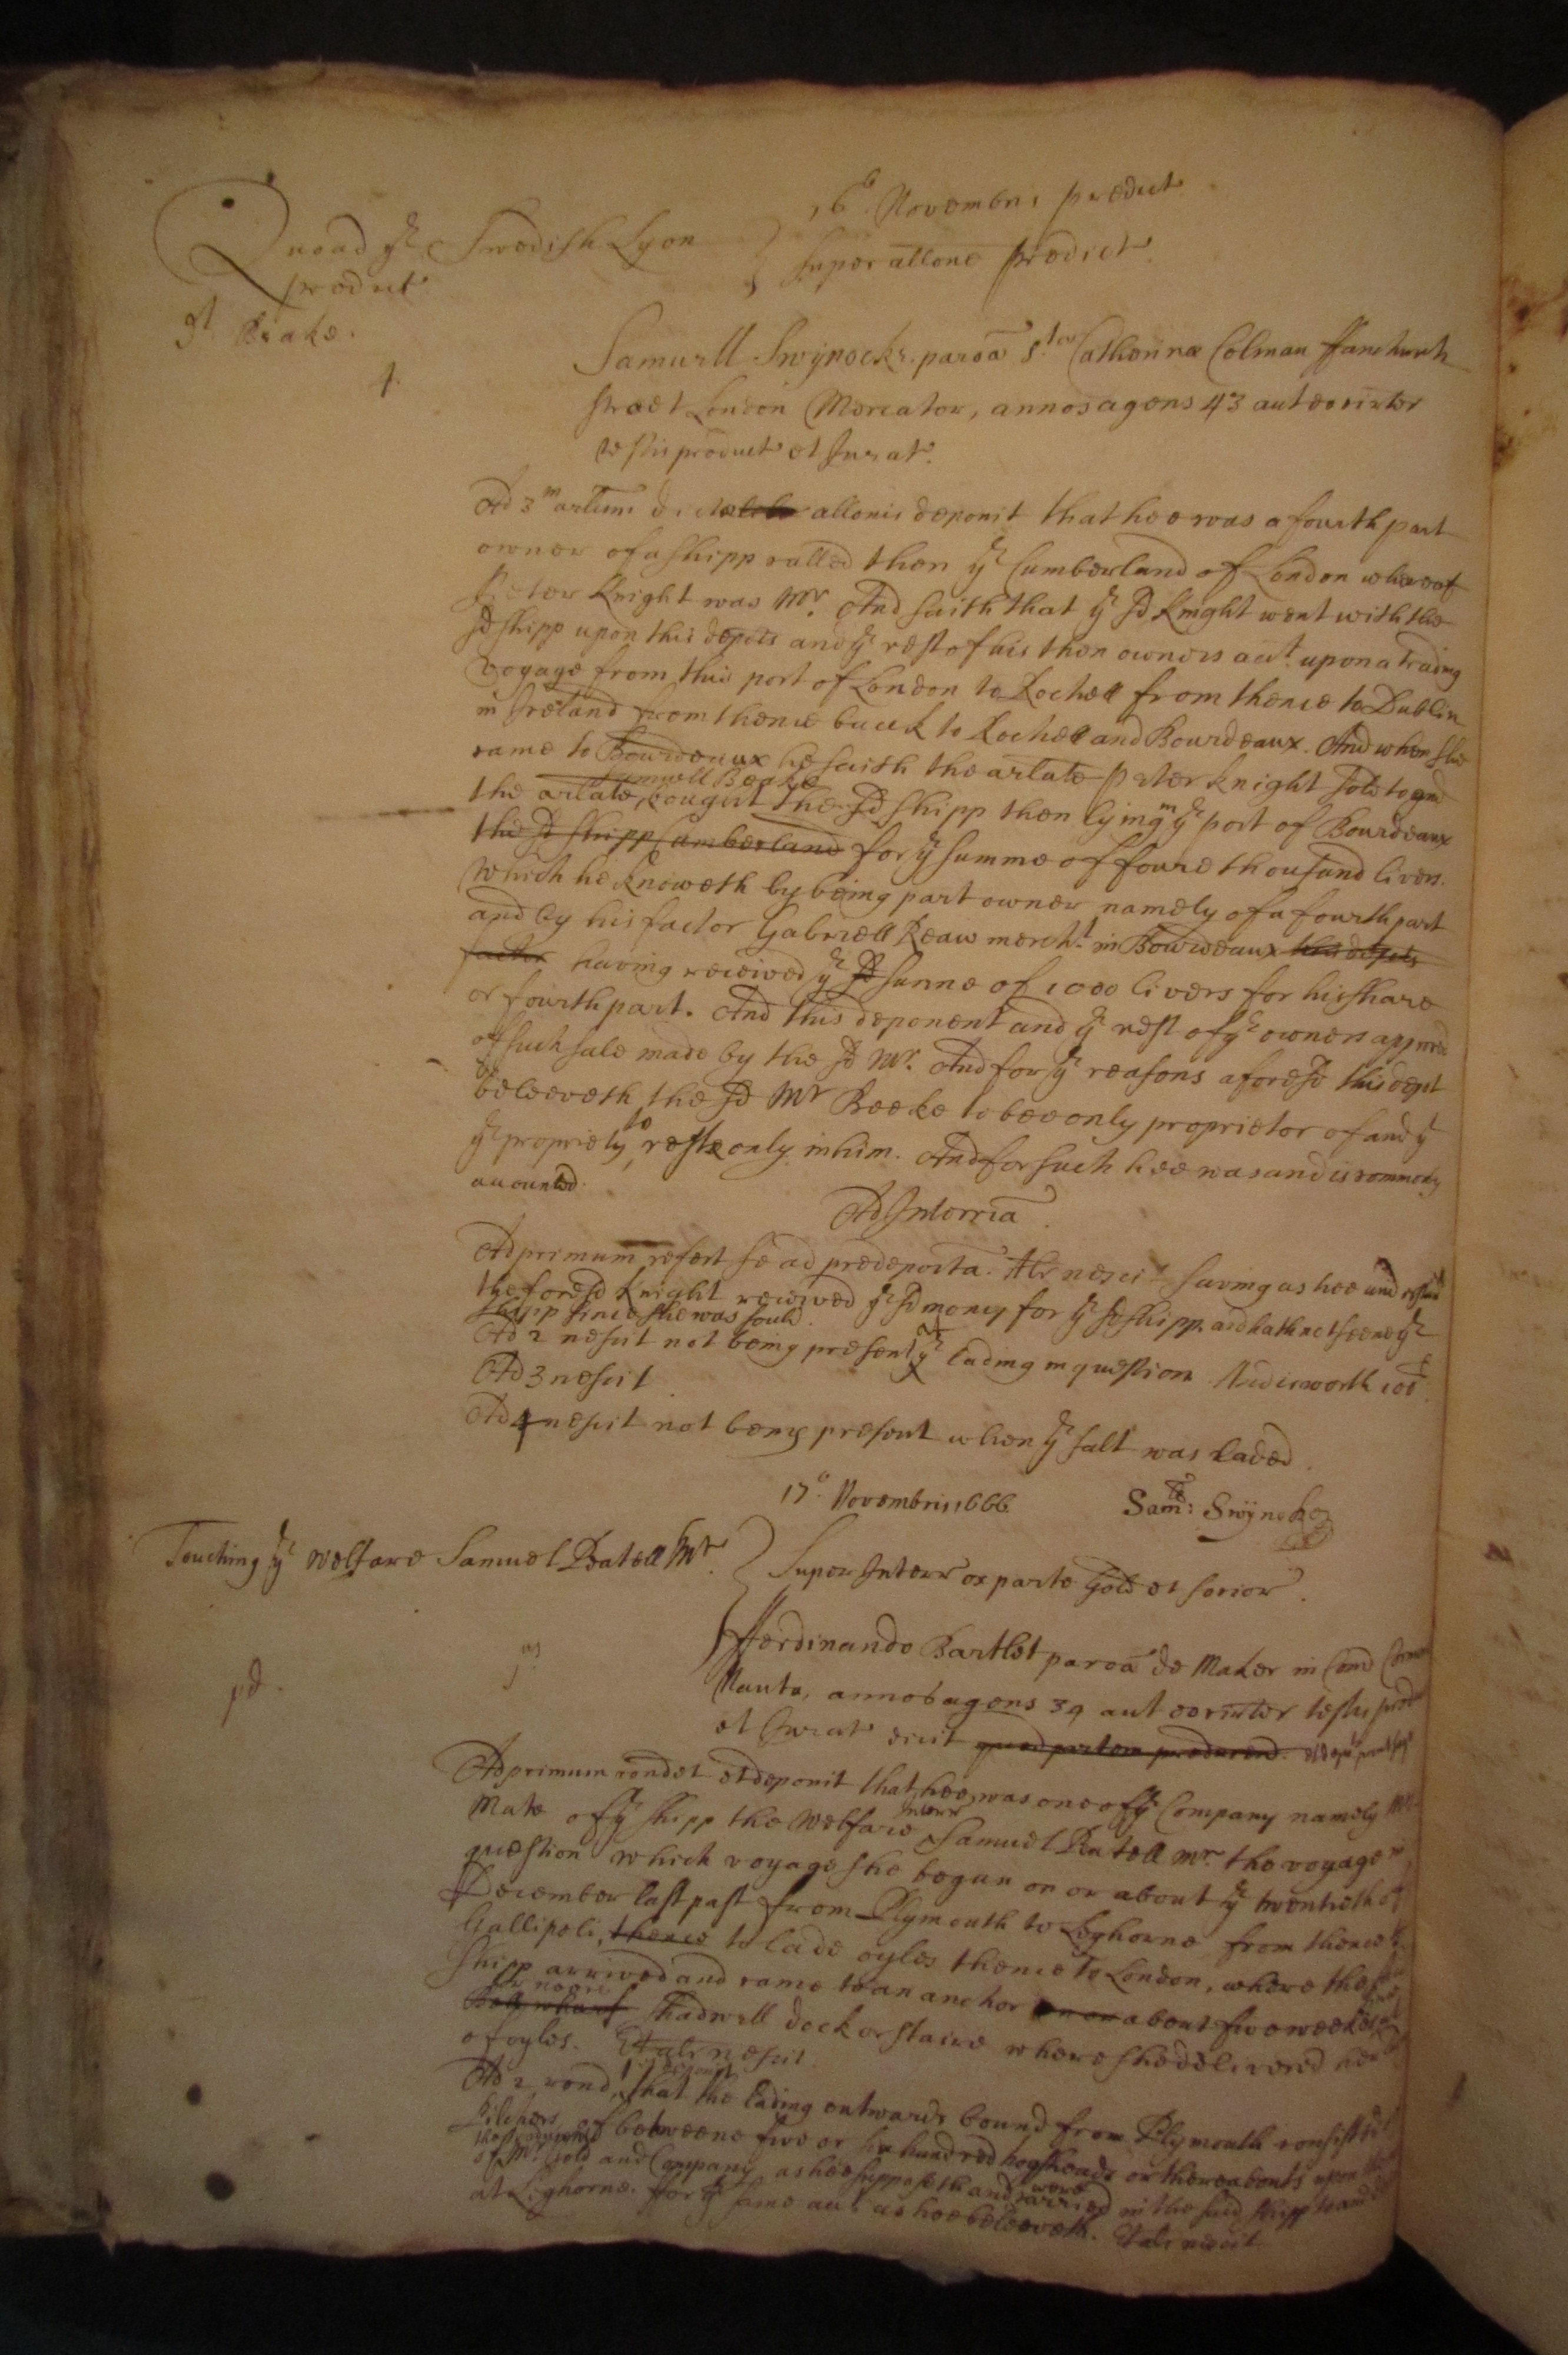 16o Novembris predict
Quoad ye Swedish Lyon
Super allone predict.
predict
Beake.
1.
Samuell Swynocke paroa Ste Catherinæ Colman ffanchurch
street London Mercator, annos agens 43 aut eo circiter
testis product et Jurat.
Ad 3m artlum deponit that hee was a fourth part
owner of a shipp called then ye Cumberland of London whereof
Peter Knight was Mr. And saith that ye sd Knight went with the
sd shipp upon this depots and ye rest of his then owners acct. upon a trading
voyage from this port of London to Rochell from thence to Dublin
in Ireland from thence back to Rochell and Bourdeaux. And when she
came to Bourdeaux he saith the arlate Peter Knight sold to and
Samuell Beake
the arlate bought the sd shipp then lying in ye port of Bourdeaux
the sd shipp Cumberland for ye summe of foure thousand livers.
Which he knoweth by being part owner namely of a fourth part
and by his factor Gabriell Reaw mercht. in Bourdeaux this depots
factor having received ye sd summe of 1000 livers for his share
or fourth part. And this deponent and ye rest of ye owners approved
of such sale made by the sd Mr. And for ye reasons aforesd this dept
beleeveth the sd Mr Beeke to bee only proprietor of and
ye propriety to reste only in him. And for such hee was and is commonly
accounted.
Ad Interria.
Ad primum refert se ad predeposita. Alr nescit saving as hee
the foresd Knight received ye sd money for ye sd shipp and hath not seene ye
shipp since she was sould.
Ad 2 nescit not being present at ye lading in question And is worth
Ad 3 nescit
Ad 4 nescit not being present when ye salt was laded.
17o Novembris 1666
Sam: Swynocke
Touching ye Welfare Samuel Datell Mr.
Super Interr ex parte Gold et socior.
pd.
ffardinando Bartlet paroa de Maker in Com
Nauta, annos agens 34 aut eo circiter testis
et Jurat dicit
Ad primum rondet et deponit that hee was one of ye Company namely
Mate of ye shipp the Welfare Interr Samuel Datell mr. the voyage in
question which voyage she began on or about ye twentieth of
December last past from Plymouth to Leghorne from thence to
Gallipoli, thence to lade oyles thence to London, where the
shipp arrived and came to an anchor on or about five weekes
or neere Shadwell dock or staire where she delivered her
of oyles. Et alr nescit.
Ad 2 rond et deponit that the lading outwards bound from Plymouth consisted
Pilchers of betweene five or six hundred hogsheads or thereabouts upon the
of Mr. Gold and Company as hee supposeth and were carried in the said shipp to and
at Leghorne. for ye same acct. as hee beleeveth. Et alr nescit